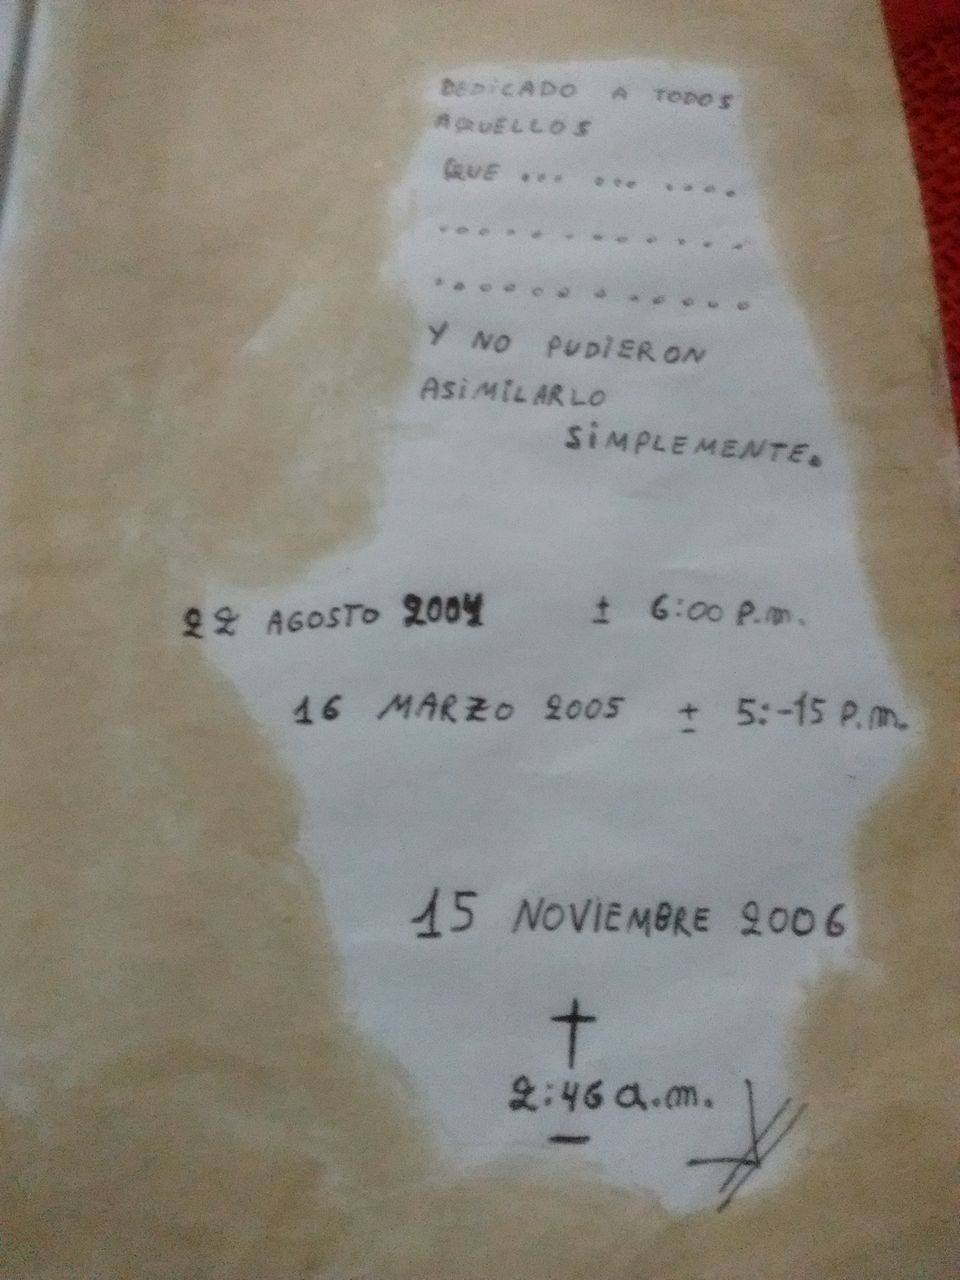 DEDICADO A TODOS
AQUELLOS
QUE ... ... ....
............
............
Y NO PUDIERON
ASIMILARLO
SIMPLEMENTE.
22 AGOSTO 2004 ± 6:00 P.m.
16 MARZO 2005 ± 5:-15 P.m.
15 NOVIEMBRE 2006
†
2:46 a.m.